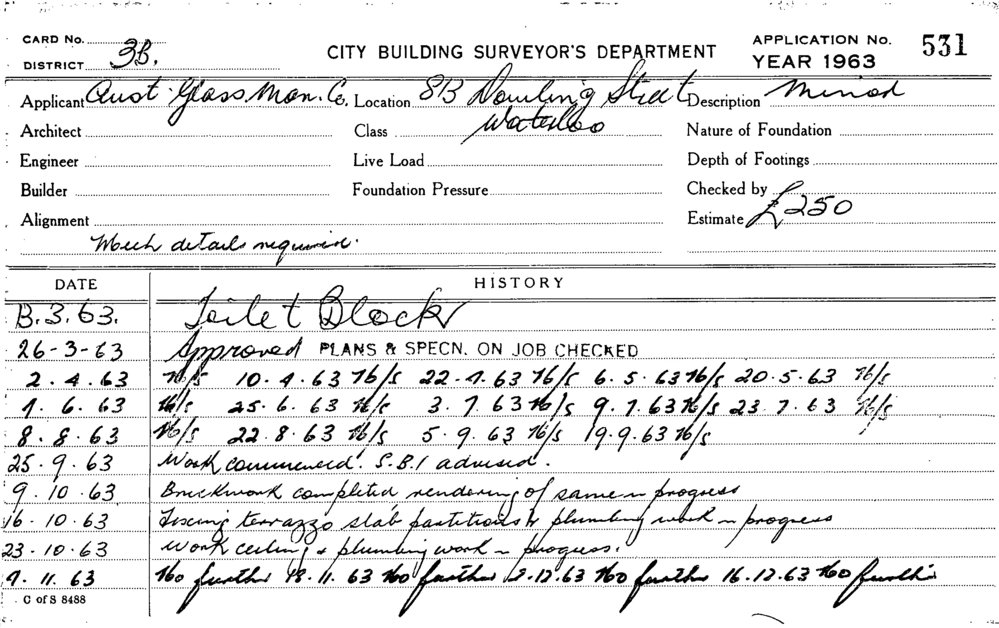 CARD No. CITY BUILDING SURVEYOR'S DEPARTMENT APPLICATION No. 531
DISTRICT 3B. YEAR 1963
Applicant Aust Glass Man. Co. Location 813 Dowling Street Description Minor
Architect Class Waterloo Nature of Foundation
Engineer Live Load Depth of Footings
Builder Foundation Pressure Checked by
Alignment Estimate £250
Mech details required.
DATE HISTORY
B.3.63. Toilet Block
26-3-63 Approved PLANS & SPECN. ON JOB CHECKED
2.4.63 N/S 10.4.63 N/S 22.4.63 N/S 6.5.63 N/S 20.5.63 N/S
6.63 N/S 25.6.63 N/S 3.7.63 N/S 9.7.63 N/S 23.7.63 N/S
8.8.63 N/S 22.8.63 N/S 5.9.63 N/S 19.9.63 N/S
25.9.63 Work commenced. S.B.I advised.
9.10.63 Brickwork completed rendering of same in progress
16.10.63 Fixing terrazzo slab partitions & plumbing work in progress
23.10.63 Work ceiling & plumbing work in progress.
11.63 No further 11.63 No further 12.63 No further 16.12.63 No further
C of S 8488